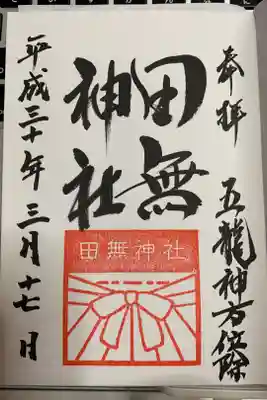 奉拝
五龍神方位除
田無
神社
田無神社
平成三十年三月十七日